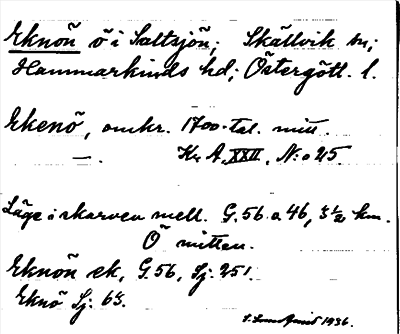 Eknön ö i Saltsjön; Skällvik sn;
Hammarkinds hd; Östergötl. l.
Ekenö, omkr. 1700-tal. mitt
—. Kr. A. XXII, N:o 25.
Läge i skarven mell. G. 56. o. 46, 3 1/2 km.
Ö mitten.
Eknön ek, G. 56, Sj: 251.
Eknö Sj: 63.
1936.